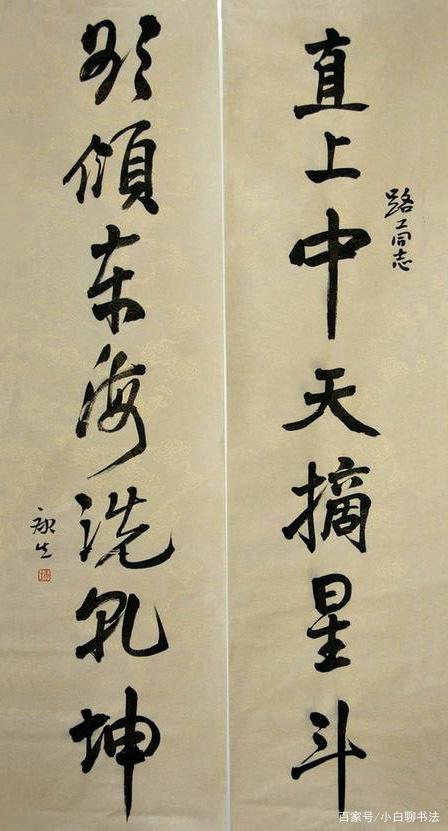 路工同志
直上中天摘星斗
欲傾东海洗乾坤
康生
百家号/小白聊书法